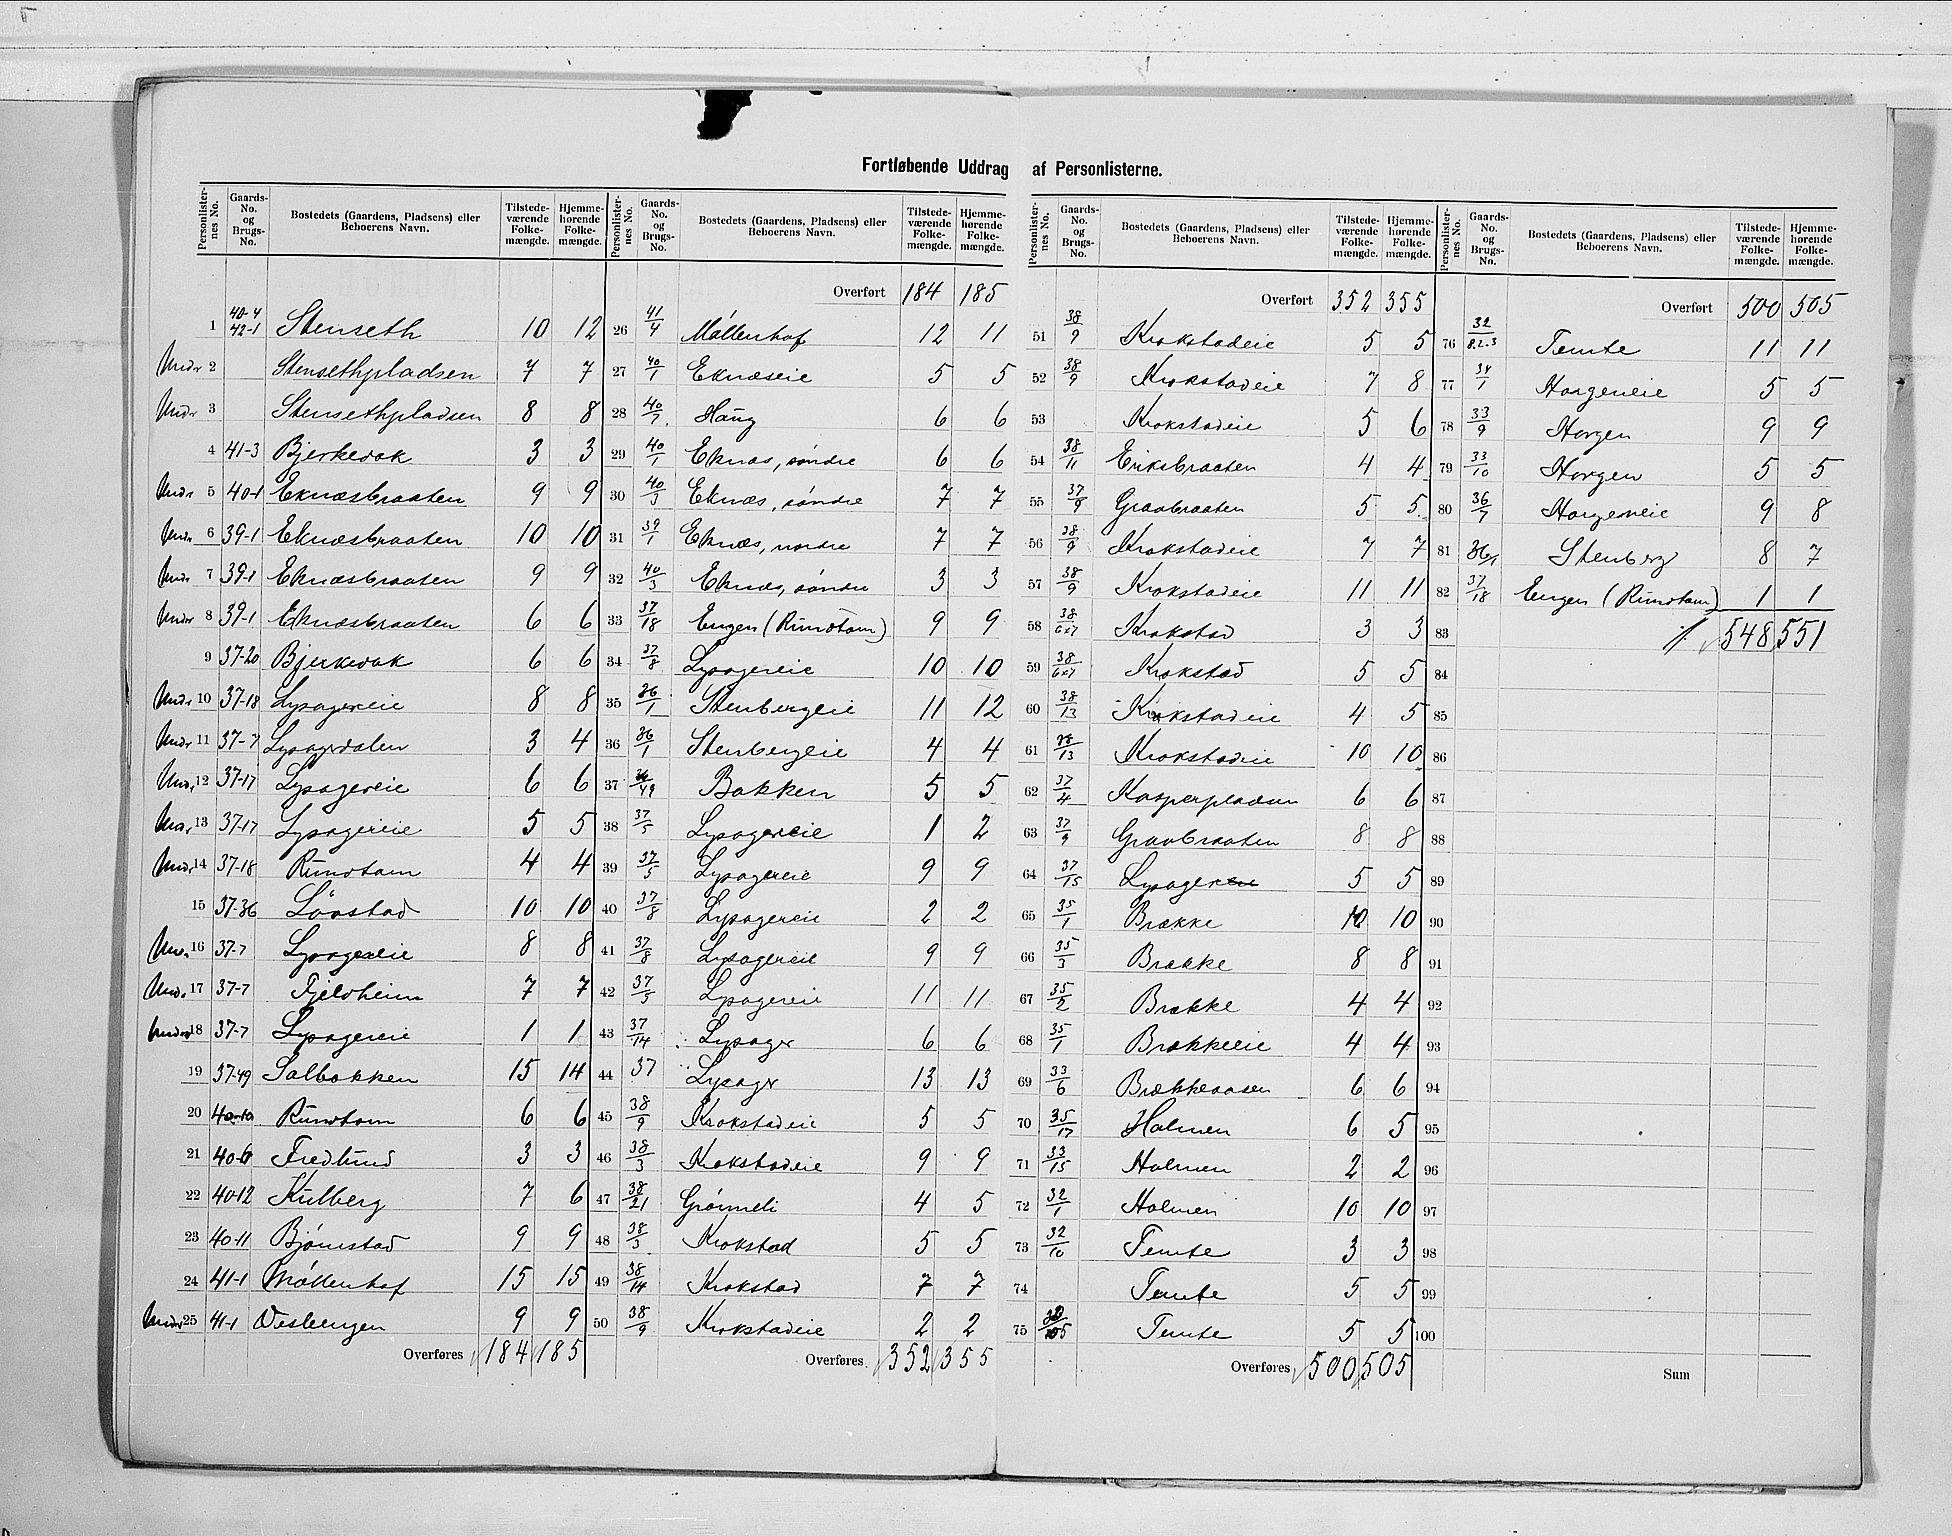 Fortløbende Uddrag af Personlisterne.
Personlister-nes No. Gaards-No. og Brugs-No. Bostedets (Gaardens, Pladsens) eller Beboerens Navn. Tilstede-værende Folke-mængde. Hjemme-hørende Folke-mængde.
1 40-4 42-1 Stenseth 10 12
Undr 2 Stensethpladsen 7 7
Undr 3 Stensethpladsen 8 8
4 41-3 Bjerkevak 3 3
Undr 5 40-1 Eknæsbraaten 9 9
Undr 6 39-1 Eknæsbraaten 10 10
Undr 7 39-1 Eknæsbraaten 9 9
Undr 8 39-1 Eknæsbraaten 6 6
9 37-20 Bjerkevak 6 6
Undr 10 37-18 Lysagereie 8 8
Undr 11 37-7 Lysagerdalen 3 4
Undr 12 37-17 Lysagereie 6 6
Undr 13 37-17 Lysagereie 5 5
Undr 14 37-18 Rundtom 4 4
15 37-36 Løvstad 10 10
Undr 16 37-7 Lysagereie 8 8
Undr 17 37-7 Fjeldheim 7 7
Undr 18 37-7 Lysagereie 1 1
19 37-49 Solbakken 15 14
20 40-10 Rundtom 6 6
21 40-6 Fredlund 3 3
22 40-12 Kulberg 7 6
23 40-11 Bjørnstad 9 9
24 41-1 Møllenhof 15 15
Undr 25 41-1 Vesleengen 9 9
Overføres 184 185
Personlister-nes No. Gaards-No. og Brugs-No. Bostedets (Gaardens, Pladsens) eller Beboerens Navn. Tilstede-værende Folke-mængde. Hjemme-hørende Folke-mængde.
Overført 184 185
26 41/4 Møllenhof 12 11
27 40/1 Eknæseie 5 5
28 40/7 Haug 6 6
29 40/1 Eknæs, søndre 6 6
30 40/3 Eknæs, søndre 7 7
31 39/1 Eknæs, nordre 7 7
32 40/3 Eknæs, søndre 3 3
33 37/18 Engen (Rundtom) 9 9
34 37/8 Lysagereie 10 10
35 36/1 Stenbergeie 11 12
36 36/1 Stenbergeie 4 4
37 /49 Bakken 5 5
38 37/5 Lysagereie 1 2
39 37/5 Lysagereie 9 9
40 37/8 Lysagereie 2 2
41 37/8 Lysagereie 9 9
42 37/5 Lysagereie 11 11
43 37/14 Lysager 6 6
44 37 Lysager 13 13
45 38/9 Krokstadeie 5 5
46 38/3 Krokstadeie 9 9
47 38/21 Grønneli 4 5
48 38/3 Krokstad 5 5
49 38/14 Krokstad 7 7
50 38/9 Krokstadeie 2 2
Overføres 352 355
Personlister-nes No. Gaards-No. og Brugs-No. Bostedets (Gaardens, Pladsens) eller Beboerens Navn. Tilstede-værende Folke-mængde. Hjemme-hørende Folke-mængde.
Overført 352 355
51 38/9 Krokstadeie 5 5
52 38/9 Krokstadeie 7 8
53 Krokstadeie 5 6
54 38/11 Eriksbraaten 4 4
55 37/9 Gravbraaten 5 5
56 38/9 Krokstadeie 7 7
57 38/9 Krokstadeie 11 11
58 38/6 & 7 Krokstad 3 3
59 38/6 & 7 Krokstad 5 5
60 38/13 Krokstadeie 4 5
61 38/13 Krokstadeie 10 10
62 37/4 Kasperpladsen 6 6
63 37/9 Gravbraaten 8 8
64 37/15 Lysager 5 5
65 35/1 Brække 10 10
66 35/3 Brække 8 8
67 35/2 Brække 4 4
68 35/1 Brækkeeie 4 4
69 33/6 Brækkeaasen 6 6
70 35/17 Holmen 6 5
71 33/15 Holmen 2 2
72 32/1 Holmen 10 10
73 32/10 Temte 3 3
74 Temte 5 5
75 Temte 5 5
Overføres 500 505
Personlister-nes No. Gaards-No. og Brugs-No. Bostedets (Gaardens, Pladsens) eller Beboerens Navn. Tilstede-værende Folke-mængde. Hjemme-hørende Folke-mængde.
Overført 500 505
76 32/8.2.3 Temte 11 11
77 34/1 Horgeneie 5 5
78 33/9 Horgen 9 9
79 33/10 Horgen 5 5
80 36/7 Horgeneie 9 8
81 36/1 Stenberg 8 7
82 37/18 Engen (Rundtom) 1 1
83 548 551
84
85
86
87
88
89
90
91
92
93
94
95
96
97
98
99
100
Sum